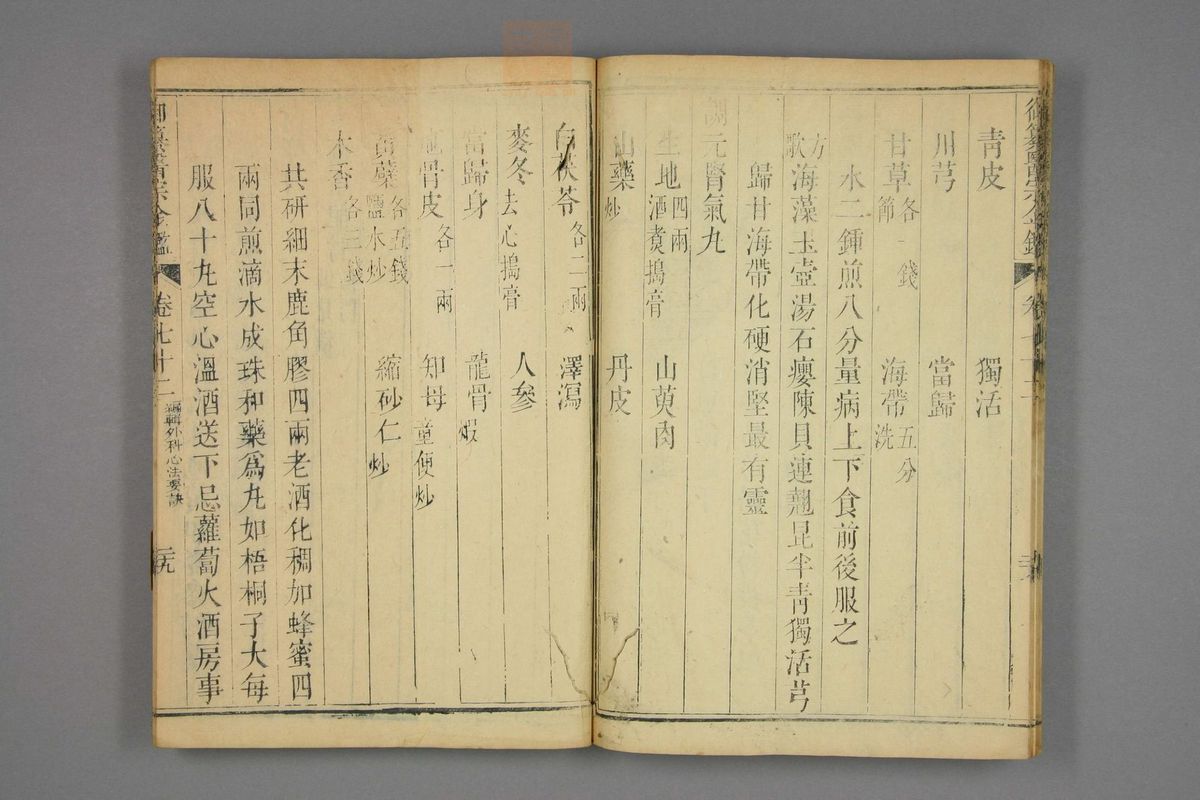 青皮 獨活
川芎 當歸
甘草節 各一錢 海帶洗 五分
水二鍾煎八分量病上下食前後服之
方歌 海藻玉壺湯石癭陳貝連翹昆半青獨活芎
歸甘海帶化硬消堅最有靈
元腎氣丸
生地四兩酒煮搗膏 山萸肉
山藥炒 丹皮
白茯苓各二兩 澤瀉
麥冬去心搗膏 人參
當歸身 龍骨煆
地骨皮各一兩 知母童便炒
黃蘗鹽水炒 各五錢 縮砂仁炒
木香各三錢
共研細末鹿角膠四兩老酒化稠加蜂蜜四
兩同煎滴水成珠和藥為丸如梧桐子大每
服八十丸空心溫酒送下忌蘿蔔火酒房事
卷七十二 編輯外科心法要訣 二十九